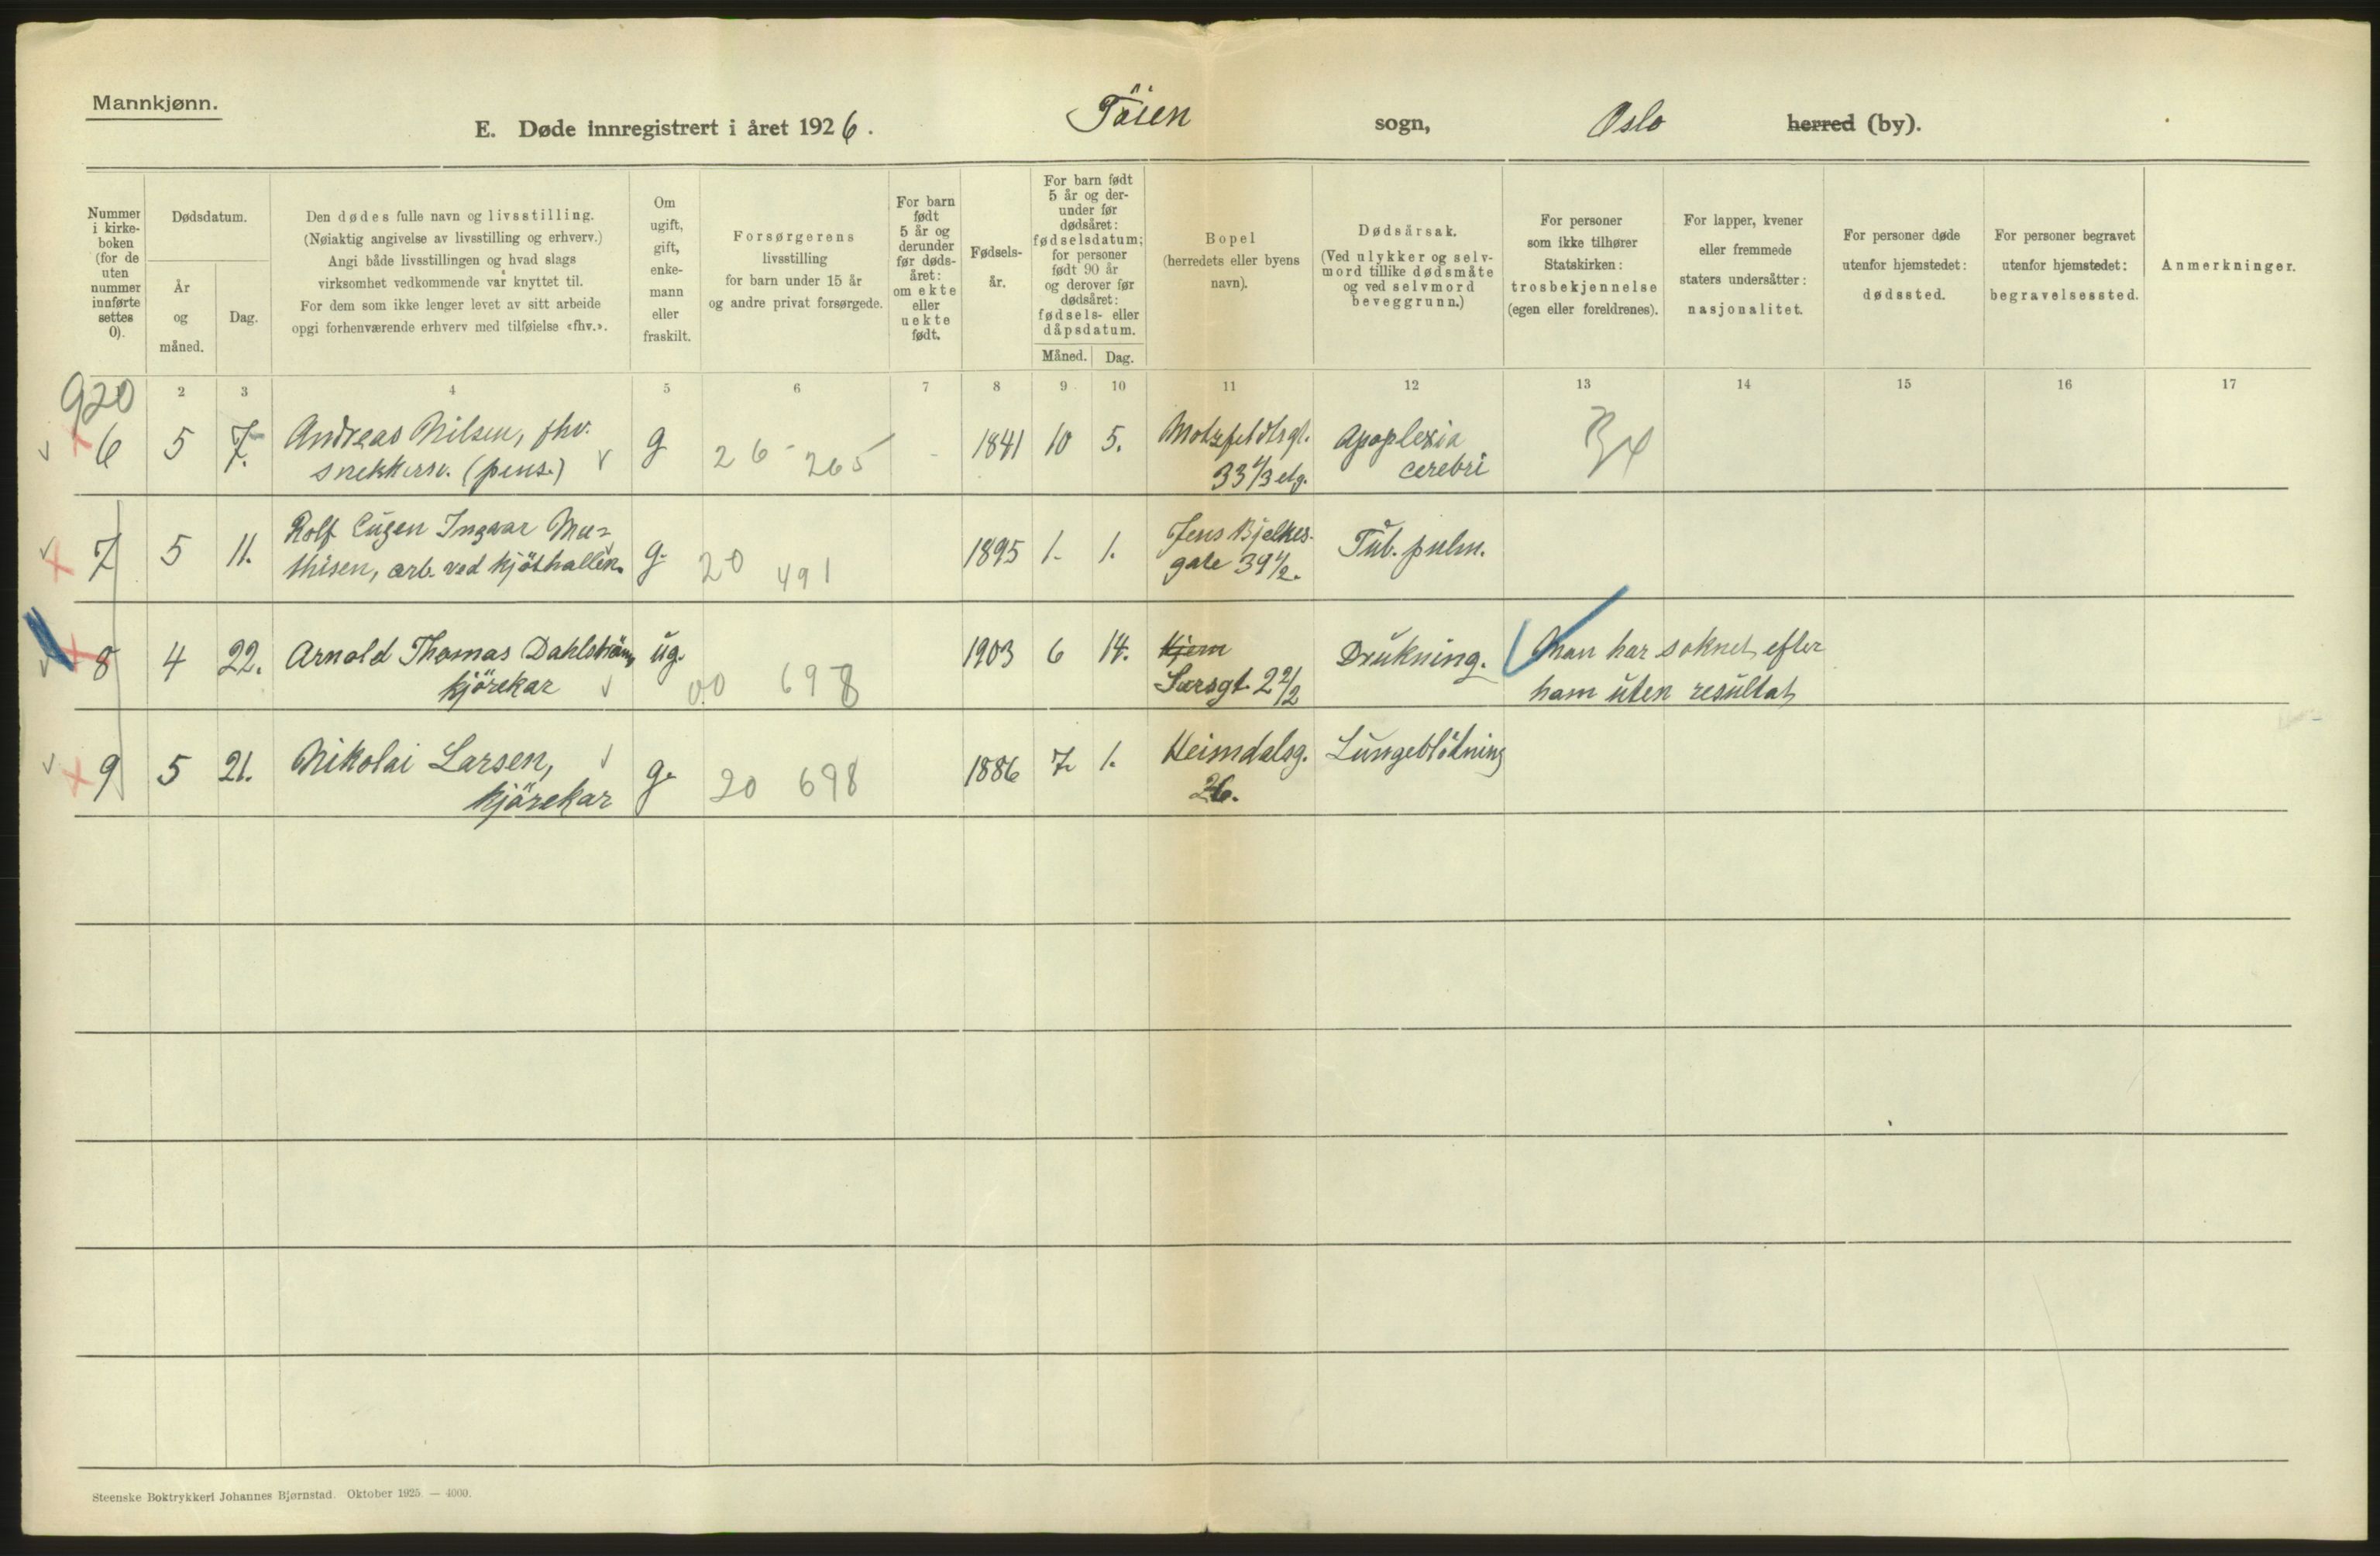 Mannkjønn.
E. Døde innregistrert i året 1926. Töien sogn, Oslo herred (by).
Nummer i kirke-boken (for de uten nummer innførte settes 0).
Dødsdatum.
År og måned.
Dag.
Den dødes fulle navn og livsstilling.
(Nøiaktig angivelse av livsstilling og erhverv.)
Angi både livsstillingen og hvad slags
virksomhet vedkommende var knyttet til.
For dem som ikke lenger levet av sitt arbeide
opgi forhenværende erhverv med tilføielse «fhv.».
Om ugift, gift, enke-mann eller fraskilt.
Forsørgerens
livsstilling
for barn under 15 år
og andre privat forsørgede.
For barn født 5 år og derunder før døds-året: om ekte eller uekte født.
Fødsels-år.
For barn født 5 år og der-under før dødsåret: fødselsdatum; for personer født 90 år og derover før dødsåret: fødsels- eller dåpsdatum.
Måned. Dag.
Bopel
(herredets eller byens
navn).
Dødsårsak.
(Ved ulykker og selv-
mord tillike dødsmåte
og ved selvmord
beveggrunn.)
For personer
som ikke tilhører
Statskirken:
trosbekjennelse
(egen eller foreldrenes).
For lapper, kvener
eller fremmede
staters undersåtter:
nasjonalitet.
For personer døde
utenfor hjemstedet:
dødssted.
For personer begravet
utenfor hjemstedet:
begravelsessted.
Anmerkninger.
920 2 3 4 5 6 7 8 9 10 11 12 13 14 15 16 17
6 5 7. Andreas Nilsen, fhv. g 26 - 265 - 1841 10 5. Motzfeldtsgt. Apoplexia
snekkersv. (pens.) 33 1/3 etg. cerebri
7 5 11. Rolf Eugen Ingvar Ma= g. 20 491 1895 1. 1. Jens Bjelkes- Tub. pulm.
thisen, arb. ved kjöthallen. gate 39 1/2.
8 4 22. Arnold Thomas Dahlström, ug. 00 698 1903 6 14. Hjem Drukning. Man har soknet efter
kjörekar Sarsgt. 2 2/2 ham uten resultat
9 5 21. Nikolai Larsen, g. 20 698 1886 7. 1. Heimdalsg. Lungeblödning
kjörekar 26.
Steenske Boktrykkeri Johannes Bjørnstad. Oktober 1925. — 4000.